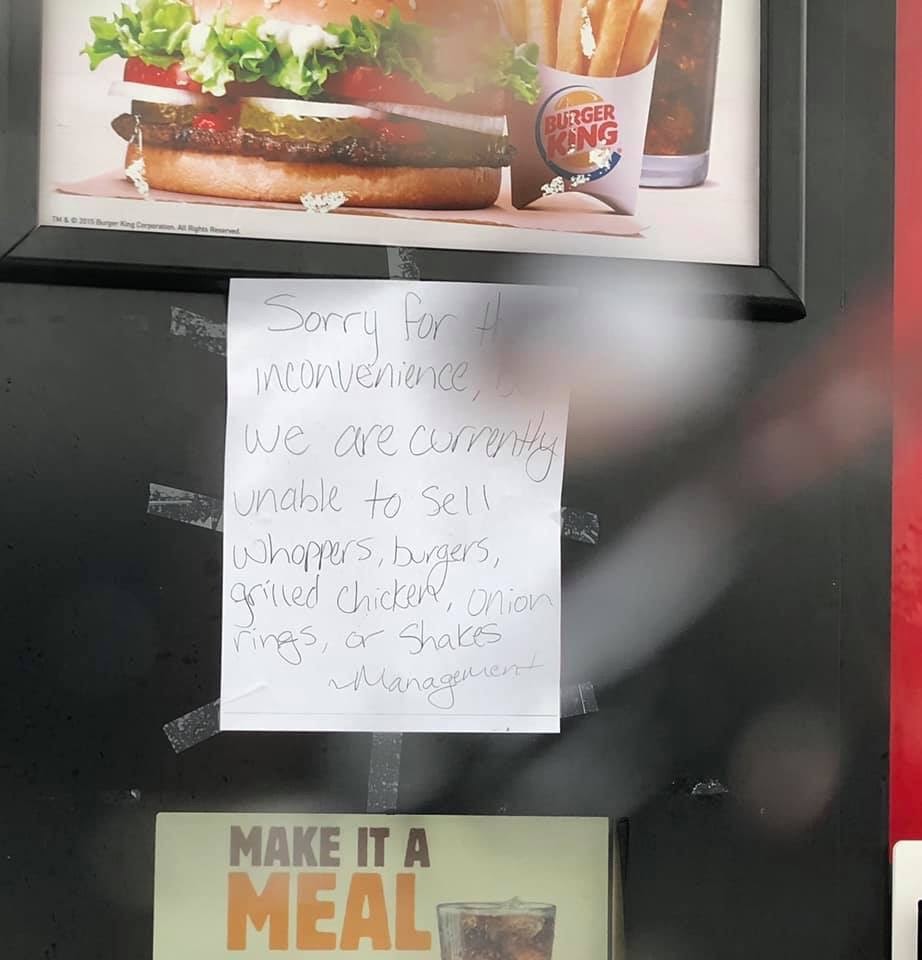 BURGER
KING
TM & © 2015 Burger King Corporation. All Rights Reserved.
Sorry for
inconvenience,
we are currently
unable to sell
whoppers, burgers,
grilled chicken, onion
rings, or shakes
~Management
MAKE IT A
MEAL